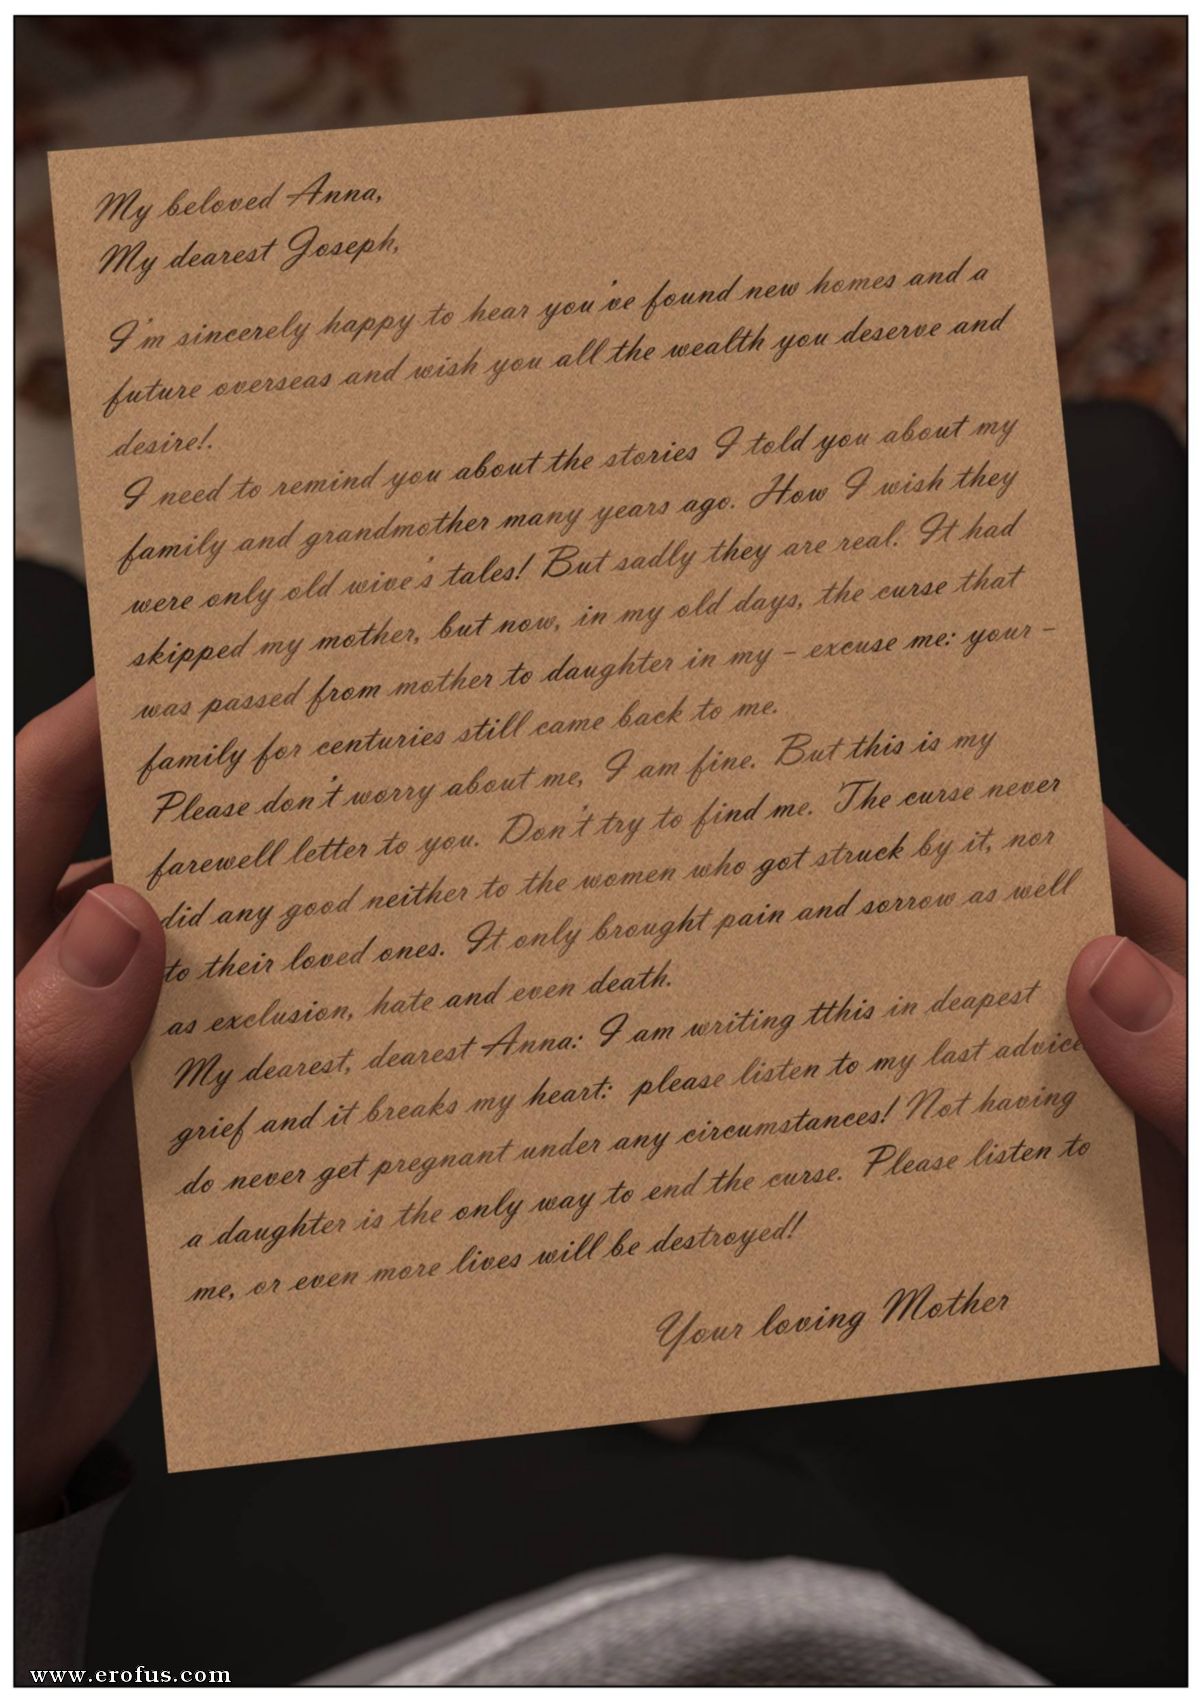 My beloved Anna,
My dearest Joseph,
I'm sincerely happy to hear you've found new homes and a
future overseas and wish you all the wealth you deserve and
desire!.
I need to remind you about the stories I told you about my
family and grandmother many years ago. How I wish they
were only old wive's tales! But sadly they are real. It had
skipped my mother, but now, in my old days, the curse that
was passed from mother to daughter in my - excuse me: your -
family for centuries still came back to me.
Please don't worry about me, I am fine. But this is my
farewell letter to you. Don't try to find me. The curse never
did any good neither to the women who got struck by it, nor
to their loved ones. It only brought pain and sorrow as well
as exclusion, hate and even death.
My dearest, dearest Anna: I am writing tthis in deapest
grief and it breaks my heart: please listen to my last advice
do never get pregnant under any circumstances! Not having
a daughter is the only way to end the curse. Please listen to
me, or even more lives will be destroyed!
Your loving Mother
www.erofus.com